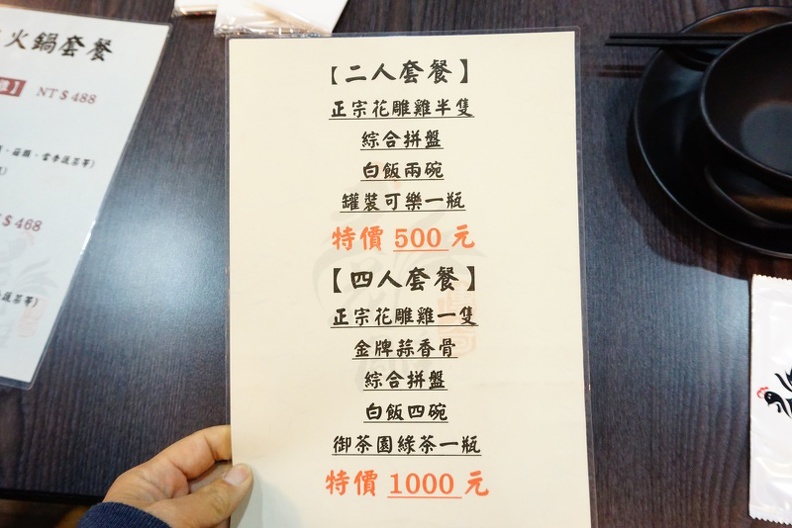 火鍋套餐
NT$488
$468
【二人套餐】
正宗花雕雞半隻
綜合拼盤
白飯兩碗
罐裝可樂一瓶
特價 500 元
【四人套餐】
正宗花雕雞一隻
金牌蒜香骨
綜合拼盤
白飯四碗
御茶園綠茶一瓶
特價 1000 元